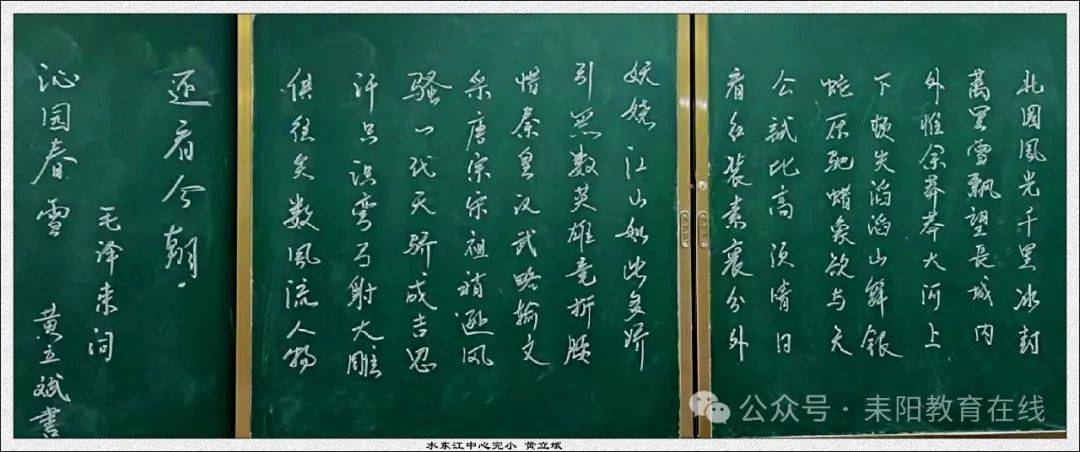 北国風光千里冰封
萬里雪飄望長城内
外惟余莽莽大河上
下顿失滔滔山舞银
蛇原驰蜡象欲与天
公試比高须晴日
看红装素裹分外
妖娆江山如此多娇
引無数英雄竞折腰
惜秦皇汉武略输文
采唐宗宋祖稍逊风
骚一代天骄成吉思
汗只识弯弓射大雕
俱往矣数風流人物
还看今朝.
毛泽东词
沁园春雪 黄立斌書
水东江中心完小 黄立斌
公众号·耒阳教育在线